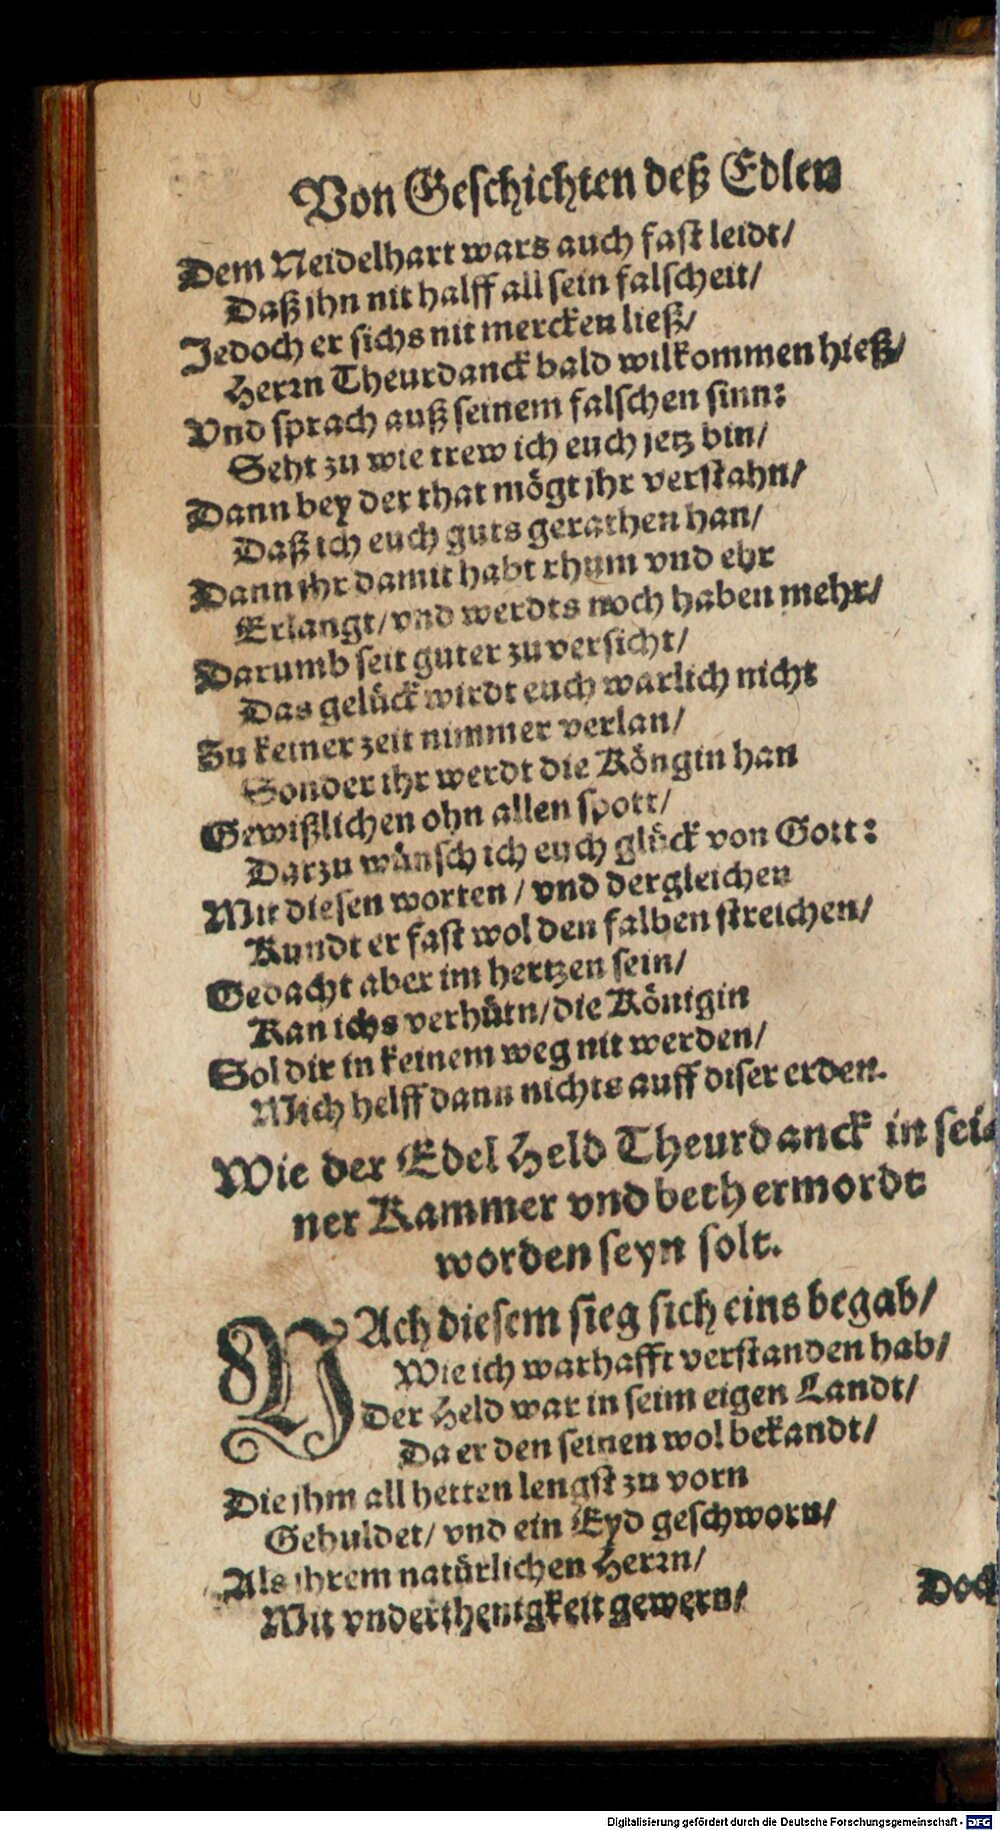 Von Geschichten deß Edlen
Dem Neidelhart wars auch fast leidt/
Daß jhn nit halff all sein falscheit/
Jedoch er sichs nit mercken ließ/
Herrn Theurdanck bald wilkommen hieß/
Vnd sprach auß seinem falschen sinn:
Seht zu wie trew ich euch jetz bin/
Dann bey der that mögt jhr verstahn/
Daß ich euch guts gerathen han/
Dann jhr damit habt rhum vnd ehr
Erlangt/ vnd werdts noch haben mehr/
Darumb seit guter zuversicht/
Das gelück wirdt euch warlich nicht
Zu keiner zeit nimmer verlan/
Sonder ihr werdt die Köngin han
Gewißlichen ohn allen spott/
Darzu wünsch ich euch glück von Gott:
Mit diesen worten / vnd dergleichen
Kundt er fast wol den falben streichen/
Gedacht aber im hertzen sein/
Kan ichs verhütn/ die Königin
Sol dir in keinem weg nit werden/
Mich helff dann nichts auff diser erden.
Wie der Edel Held Theurdanck in sei-
ner Kammer vnd beth ermordt
worden seyn solt.
NAch diesem sieg sich eins begab/
Wie ich warhafft verstanden hab/
Der Held war in seim eigen Landt/
Da er den seinen wol bekandt/
Die jhm all hetten lengst zu vorn
Gehuldet/ vnd ein Eyd geschworn/
Als jhrem natürlichen Herrn/
Mit vnderthenigkeit gewern/
Doch
Digitalisierung gefördert durch die Deutsche Forschungsgemeinschaft - DFG